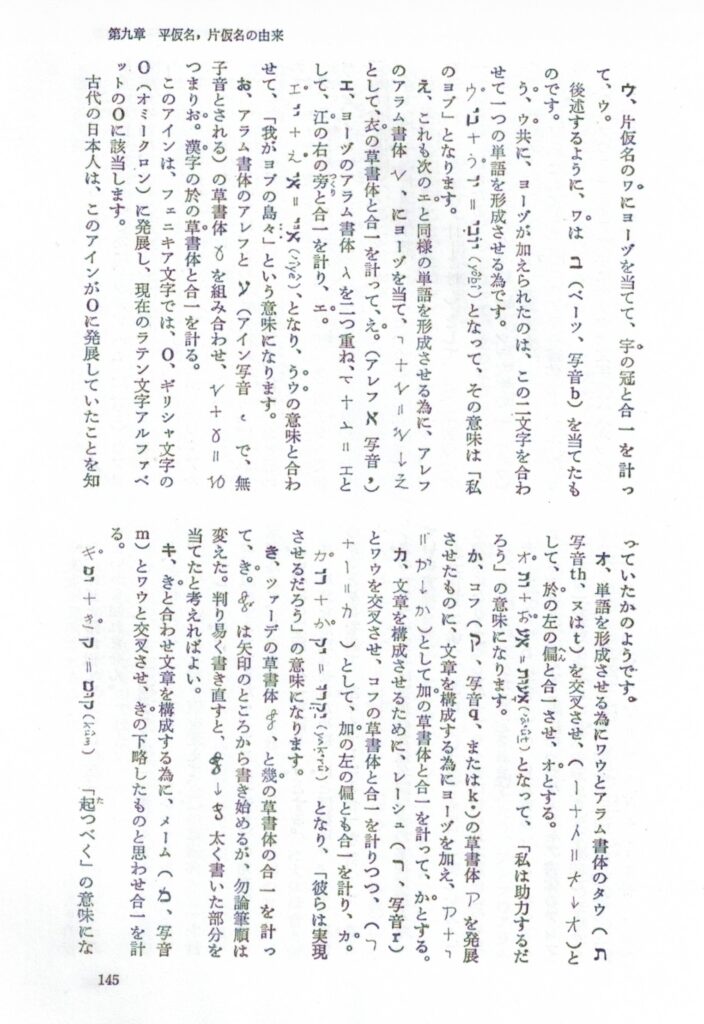 第九章　平仮名，片仮名の由来
ウ、片仮名のワにヨーヅを当てて、字の冠と合一を計っ
て、ウ。
後述するように、ワは ב（ベーツ、写音b）を当てたも
のです。
う、ウ共に、ヨーヅが加えられたのは、この二文字を合わ
せて一つの単語を形成させる為です。
となって、その意味は「私
のヨブ」となります。
え、これも次のエと同様の単語を形成させる為に、アレフ
のアラム書体、にヨーヅを当て、
として、衣の草書体と合一を計って、え。（アレフ א 写音,）
エ、ヨーヅのアラム書体 を二つ重ね、＝エと
して、江の右の旁と合一を計り、エ。
となり、うウの意味と合わ
せて、「我がヨブの島々」という意味になります。
お、アラム書体のアレフと ע（アイン写音 で、無
子音とされる）の草書体 を組み合わせ、
つまりお。漢字の於の草書体と合一を計る。
このアインは、フェニキア文字では、O、ギリシャ文字の
O（オミークロン）に発展し、現在のラテン文字アルファベ
ットのOに該当します。
古代の日本人は、このアインがOに発展していたことを知
っていたかのようです。
オ、単語を形成させる為にワウとアラム書体のタウ（ת
写音th、ヌはt）を交叉させ、（ ）と
して、於の左の偏と合一させ、オとする。
となって、「私は助力するだ
ろう」の意味になります。
か、コフ（ק、写音q、またはk・）の草書体 を発展
させたものに、文章を構成する為にヨーヅを加え、
か→か）として加の草書体と合一を計って、かとする。
カ、文章を構成させるために、レーシュ（ר、写音r）
とワウを交叉させ、コフの草書体と合一を計りつつ、（
＝カ）として、加の左の偏とも合一を計り、カ。
となり、「彼らは実現
させるだろう」の意味になります。
き、ツァーデの草書体 、と幾の草書体の合一を計っ
て、き。 は矢印のところから書き始めるが、勿論筆順は
変えた。判り易く書き直すと、 太く書いた部分を
当てたと考えればよい。
キ、きと合わせ文章を構成する為に、メーム（מ、写音
m）とワウと交叉させ、きの下略したものと思わせ合一を計
る。
「起つべく」の意味にな
145